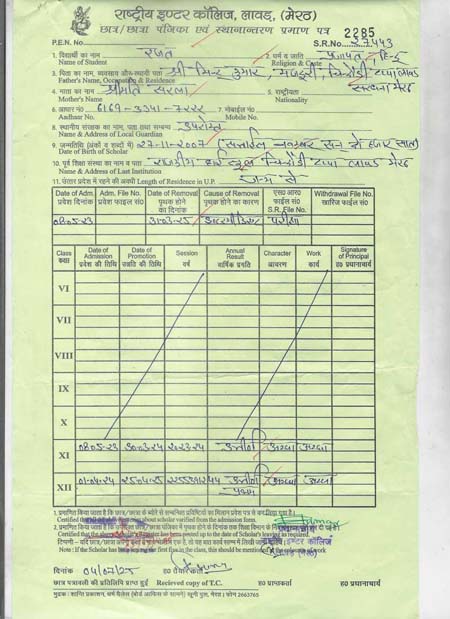 राष्ट्रीय इण्टर कॉलिज, लावड़, (मेरठ)
छात्र/छात्रा पंजिका एवं स्थानान्तरण प्रमाण पत्र 2285
P.E.N. No. S.R.No. 27443
1. विद्यार्थी का नाम रजत 2. धर्म व जाति प्रजापति, हिन्दू
Name of Student Religion & Caste
3. पिता का नाम, व्यवसाय और स्थायी पता श्री कुमार, मजदूरी,
Father's Name, Occupation & Residence मेरठ
4. माता का नाम श्रीमति सरला 5. राष्ट्रीयता
Mother's Name Nationality
6. आधार नं0 6169-3341-7222 7. मोबाईल नं0
Aadhaar No. Mobile No.
8. स्थानीय संरक्षक का नाम, पता तथा सम्बन्ध उपरोक्त
Name & Address of Local Guardian
9. जन्मतिथि (अंकों व शब्दों में) 27-11-2007 (सत्ताईस नवम्बर सन् दो हजार सात)
Date of Birth of Scholar
10. पूर्व शिक्षा संस्था का नाम व पता राजकीय हाई स्कूल मेरठ
Name & Address of Last Institution
11. उत्तर प्रदेश में रहने की अवधि Length of Residence in U.P. जन्म से
Date of Adm. Adm. File No. Date of Removal Cause of Removal एस0 आर0 Withdrawal File No.
प्रवेश दिनांक प्रवेश फाईल सं0 पृथक होने का दिनांक पृथक होने का कारण फाईल सं0 S.R. File No. खारिज फाईल सं0
08.05.23 31-03-25 परीक्षा
Class Date of Admission Date of Promotion Session Annual Result Character Work Signature of Principal
कक्षा प्रवेश की तिथि उन्नति की तिथि वर्ष वार्षिक प्रगति आचरण कार्य ह0 प्रधानाचार्य
VI
VII
VIII
IX
X
XI 08.05.23 30.03.24 2023-24 उत्तीर्ण अच्छा अच्छा
XII 01.04.24 25.04.25 2024-25 उत्तीर्ण अच्छा अच्छा
1. प्रमाणित किया जाता है कि छात्र/छात्रा के ब्यौरे से सम्बन्धित प्रविष्टियों का मिलान प्रवेश पत्र से कर लिया गया है।
Certified that about scholar verified from the admission form.
2. प्रमाणित किया जाता है कि
Certified that the posted up to the date of Scholar's leaving as required.
टिप्पणी -
Note : If the Scholar has been the first five in the class, this should be mentioned of work
इण्टर कॉलिज
दिनांक 04/07/25
छात्र पत्रावली की प्रतिलिपि प्राप्त हुई Recieved copy of T.C. ह0 प्राप्तकर्ता ह0 प्रधानाचार्य
मुद्रक : शान्ति प्रकाशन, धर्म पैलेस (बोर्ड आफिस के सामने) खूनी पुल, मेरठ। फोन 2663765